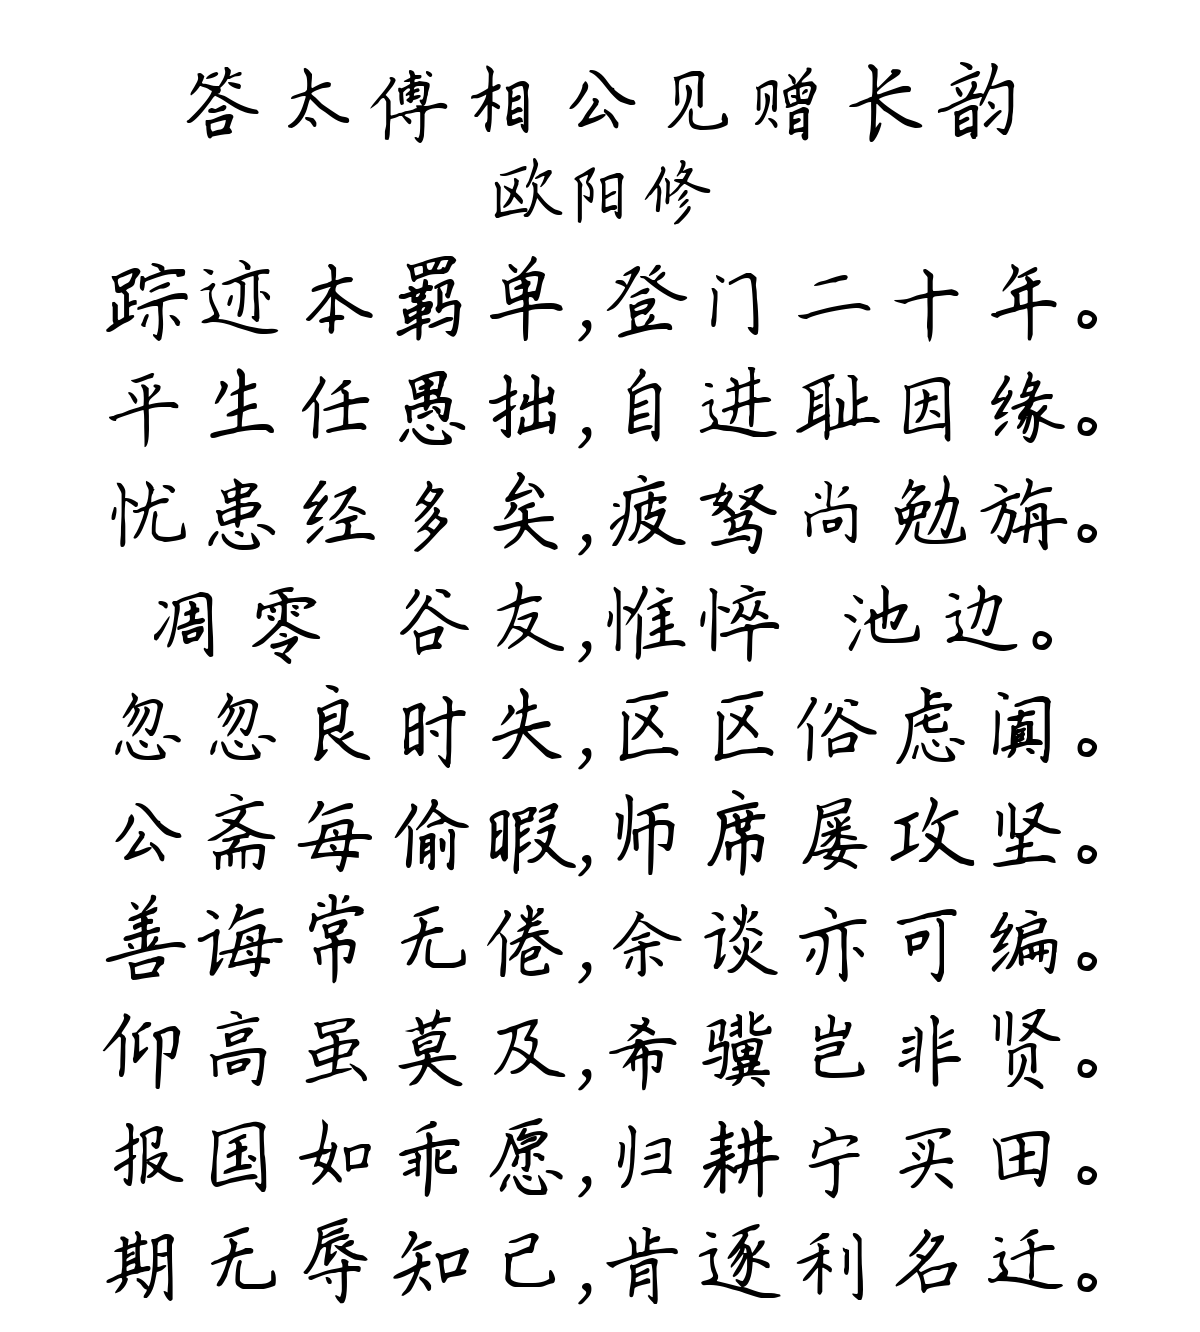 答太傅相公见赠长韵
欧阳修
踪迹本羁单,登门二十年。
平生任愚拙,自进耻因缘。
忧患经多矣,疲驽尚勉旃。
凋零 谷友,惟悴 池边。
忽忽良时失,区区俗虑阗。
公斋每偷暇,师席屡攻坚。
善诲常无倦,余谈亦可编。
仰高虽莫及,希骥岂非贤。
报国如乖愿,归耕宁买田。
期无辱知己,肯逐利名迁。